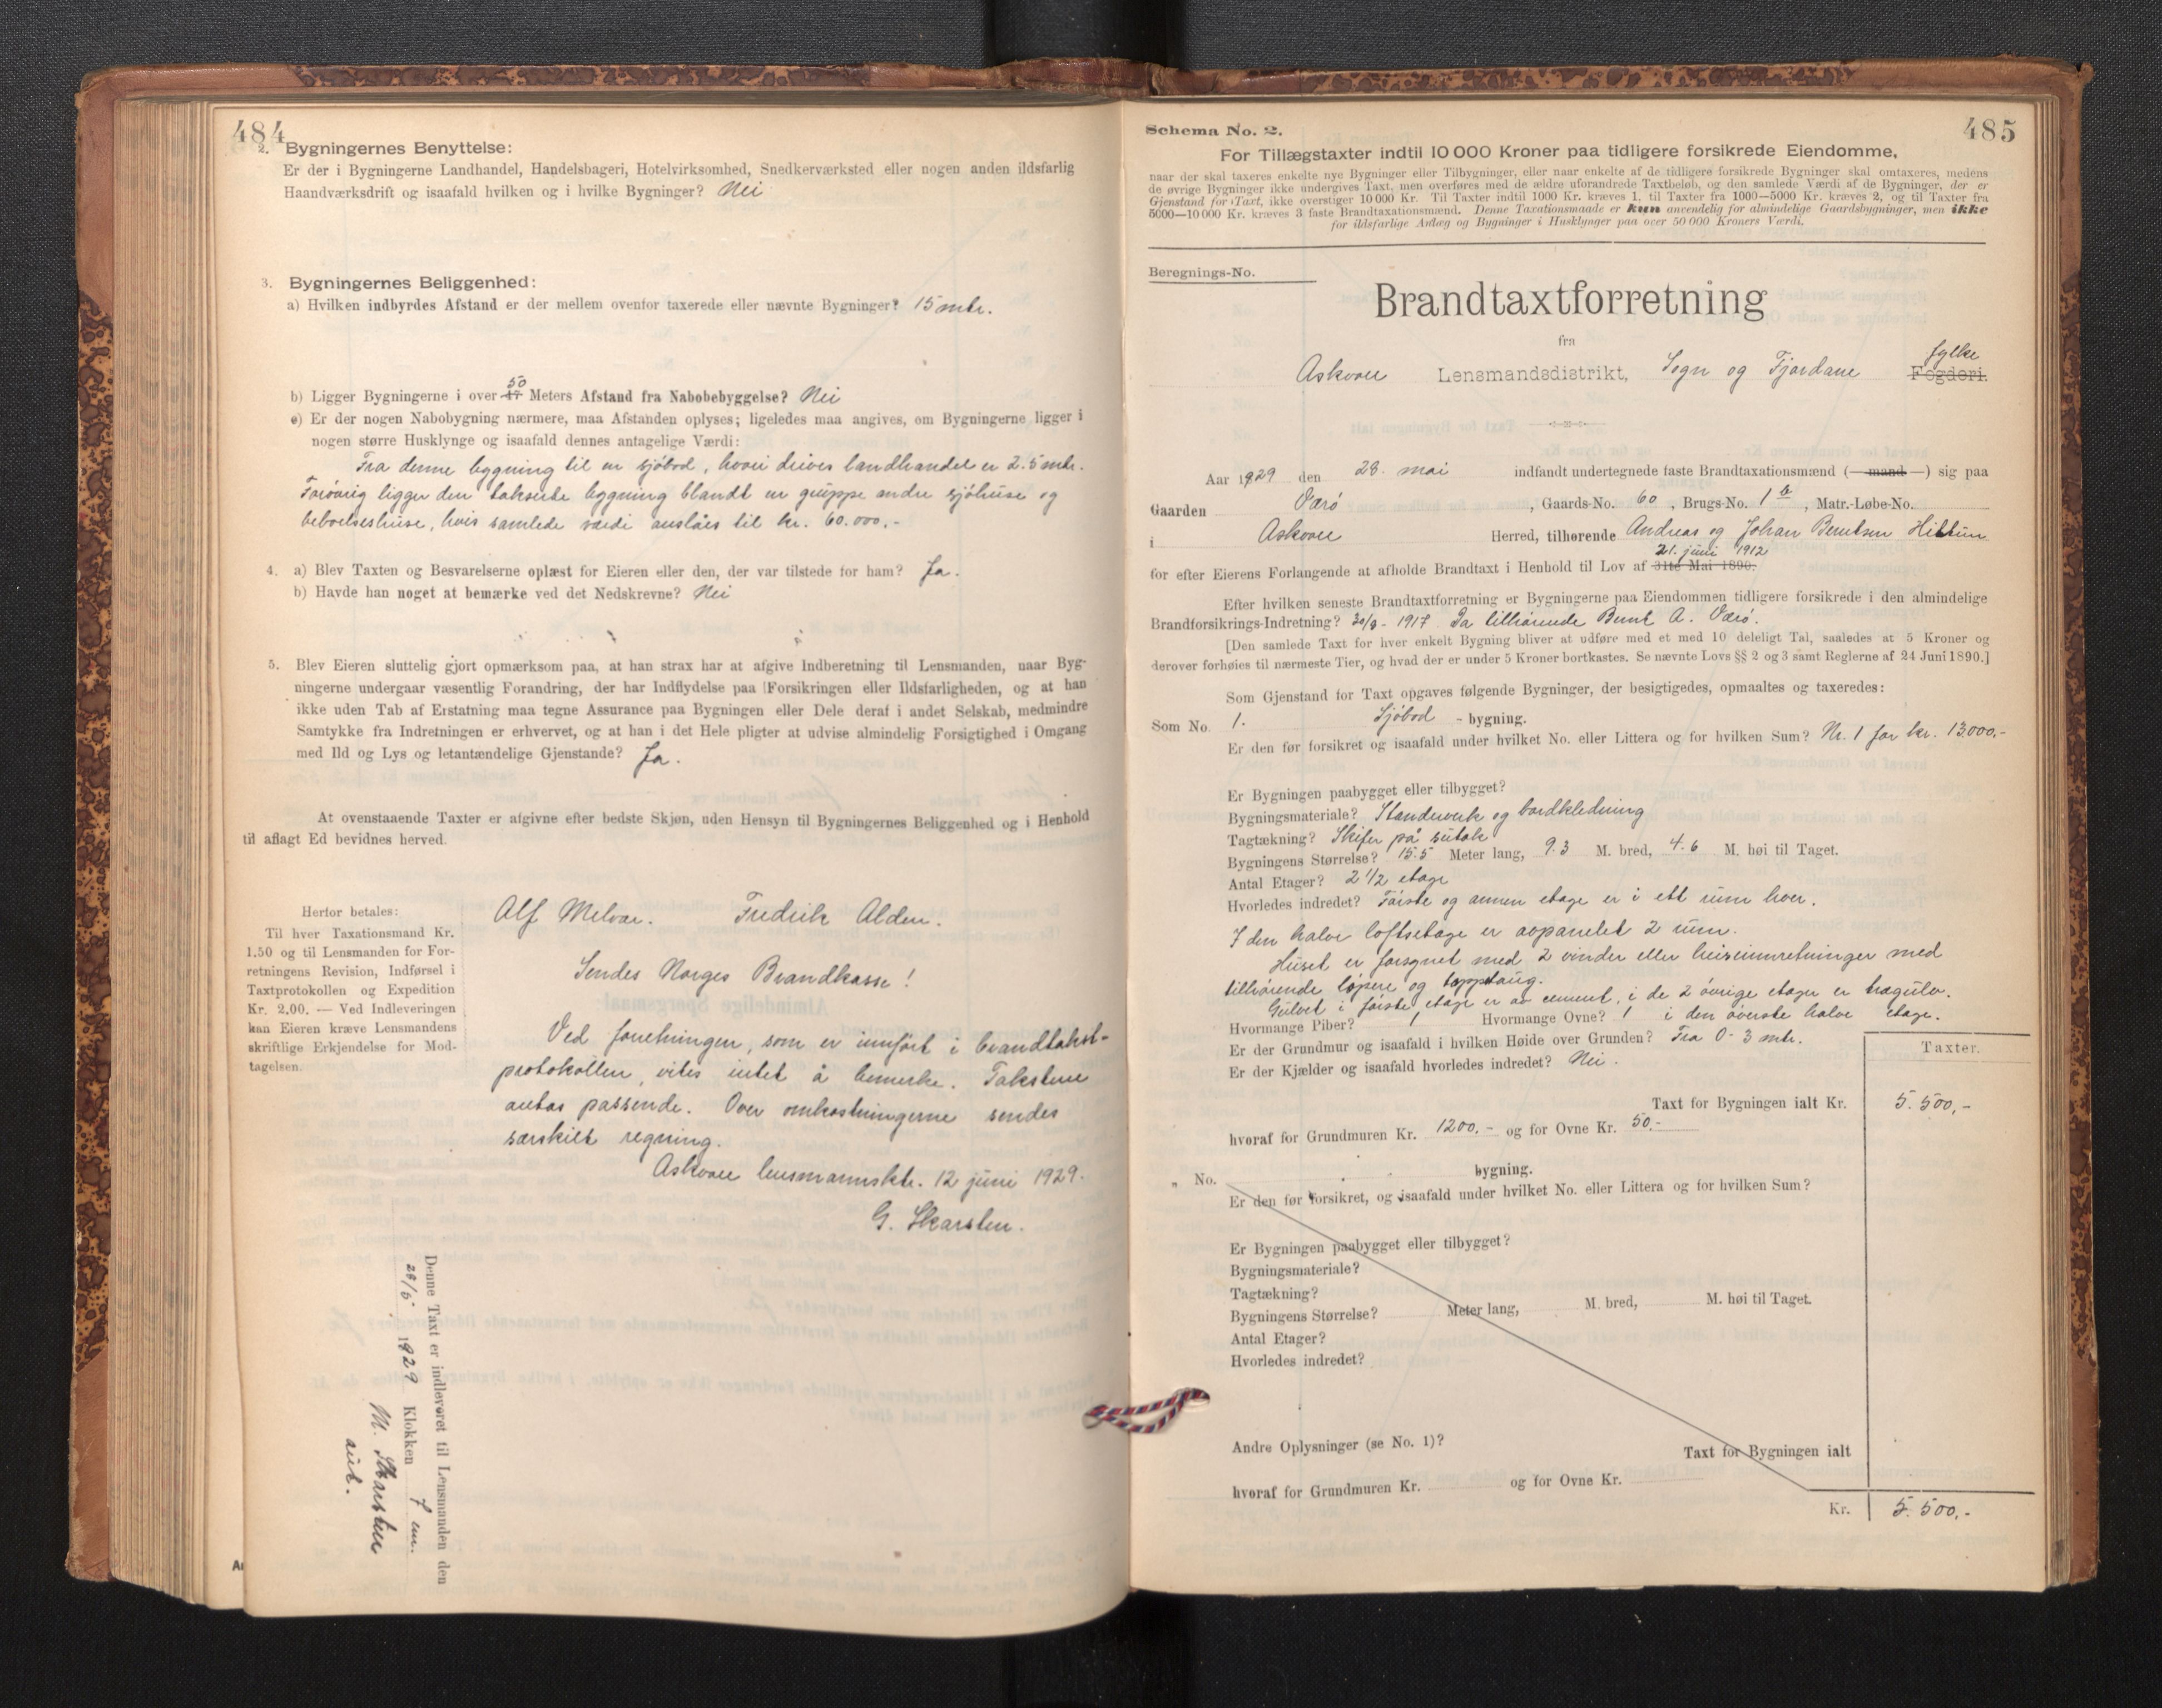 484
2. Bygningernes Benyttelse:
Er der i Bygningerne Landhandel, Handelsbageri, Hotelvirksomhed, Snedkerværksted eller nogen anden ildsfarlig
Haandværksdrift og isaafald hvilken og i hvilke Bygninger? Nei
3. Bygningernes Beliggenhed:
a) Hvilken indbyrdes Afstand er der mellem ovenfor taxerede eller nævnte Bygninger? 15 mtr.
50
b) Ligger Bygningerne i over Meters Afstand fra Nabobebyggelse? Nei
c) Er der nogen Nabobygning nærmere, maa Afstanden oplyses; ligeledes maa angives, om Bygningerne ligger i
nogen større Husklynge og isaafald dennes antagelige Værdi:
Fra denne bygning til en sjöbod, hvori drives landhandel er 2.5 mtr.
Forövrig ligger den takserte bygning blandt en gruppe andre sjöhuse og
beboelseshuse, hvis samlede værdi anslåes til kr. 60.000,-
4. a) Blev Taxten og Besvarelserne oplæst for Eieren eller den, der var tilstede for ham? Ja.
b) Havde han noget at bemærke ved det Nedskrevne? Nei
5. Blev Eieren sluttelig gjort opmærksom paa, at han strax har at afgive Indberetning til Lensmanden, naar Byg-
ningerne undergaar væsentlig Forandring, der har Indflydelse paa Forsikringen eller Ildsfarligheden, og at han
ikke uden Tab af Erstatning maa tegne Assurance paa Bygningen eller Dele deraf i andet Selskab, medmindre
Samtykke fra Indretningen er erhvervet, og at han i det Hele pligter at udvise almindelig Forsigtighed i Omgang
med Ild og Lys og letantændelige Gjenstande? Ja.
At ovenstaaende Taxter er afgivne efter bedste Skjøn, uden Hensyn til Bygningernes Beliggenhed og i Henhold
til aflagt Ed bevidnes herved.
Herfor betales:
Til hver Taxationsmand Kr.
1.50 og til Lensmanden for For-
retningens Revision, Indførsel i
Taxtprotokollen og Expedition
Kr. 2.00. — Ved Indleveringen
kan Eieren kræve Lensmandens
skriftlige Erkjendelse for Mod-
tagelsen.
Alf Melvær. Fredrik Alden.
Sendes Norges Brandkasse!
Ved forretningen, som er innfört i brandtakst-
protokollen, vites intet å bemerke. Takstene
antas passende. Over omkostningerne sendes
særskilt regning.
Askvoll lensmannsktr. 12 juni 1929.
G. Skarsten.
Denne Taxt er indleveret til Lensmanden den
28/5 1929 Klokken 7 em.
M. Skarsten
aut.
485
Schema No. 2.
For Tillægstaxter indtil 10 000 Kroner paa tidligere forsikrede Eiendomme,
naar der skal taxeres enkelte nye Bygninger eller Tilbygninger, eller naar enkelte af de tidligere forsikrede Bygninger skal omtaxeres, medens
de øvrige Bygninger ikke undergives Taxt, men overføres med de ældre uforandrede Taxtbeløb, og den samlede Værdi af de Bygninger, der er
Gjenstand for Taxt, ikke overstiger 10 000 Kr. Til Taxter indtil 1000 Kr. kræves 1, til Taxter fra 1000—5000 Kr. kræves 2, og til Taxter fra
5000—10 000 Kr. kræves 3 faste Brandtaxationsmænd. Denne Taxationsmaade er kun anvendelig for almindelige Gaardsbygninger, men ikke
for ildsfarlige Anlæg og Bygninger i Husklynger paa over 50 000 Kroners Værdi.
Beregnings-No.
Brandtaxtforretning
fra
fylke
Askvoll Lensmandsdistrikt, Sogn og Fjordane Fogderi.
Aar 1929 den 28. mai indfandt undertegnede faste Brandtaxationsmænd (— mand —) sig paa
Gaarden Værö, Gaards-No. 60, Brugs-No. 1 b, Matr.-Løbe-No.
i Askvoll Herred, tilhørende Andreas og Johan Berntsen Hittun
21. juni 1912
for efter Eierens Forlangende at afholde Brandtaxt i Henhold til Lov af 31te Mai 1890.
Efter hvilken seneste Brandtaxtforretning er Bygningerne paa Eiendommen tidligere forsikrede i den almindelige
Brandforsikrings-Indretning? 20/9 - 1917. Da tilhörende Bernt A. Værö.
[Den samlede Taxt for hver enkelt Bygning bliver at udføre med et med 10 deleligt Tal, saaledes at 5 Kroner og
derover forhøies til nærmeste Tier, og hvad der er under 5 Kroner bortkastes. Se nævnte Lovs §§ 2 og 3 samt Reglerne af 24 Juni 1890.]
Som Gjenstand for Taxt opgaves følgende Bygninger, der besigtigedes, opmaaltes og taxeredes:
Som No. 1. Sjöbod - bygning.
Er den før forsikret og isaafald under hvilket No. eller Littera og for hvilken Sum? Nr. 1 for kr. 13.000,-
Er Bygningen paabygget eller tilbygget?
Bygningsmateriale? Standerverk og bordkledning
Tagtækning? Skifer på sutak
Bygningens Størrelse? 15.5 Meter lang, 9.3 M. bred, 4.6 M. høi til Taget.
Antal Etager? 2 1/2 etage
Hvorledes indredet? Förste og annen etage er i ett rum hver.
I den halve loftsetage er avpanelet 2 rum.
Huset er forsynet med 2 vinder eller heiseinnretninger med
tilhörende löpere og topptaug.
Gulvet i förste etage er av cement, i de 2 övrige etager er tregulv.
Hvormange Piber? 1 Hvormange Ovne? 1 i den överste halve etage.
Er der Grundmur og isaafald i hvilken Høide over Grunden? Fra 0-3 mtr.
Er der Kjælder og isaafald hvorledes indredet? Nei.
Taxter.
Taxt for Bygningen ialt Kr. 5.500,-
hvoraf for Grundmuren Kr. 1200,- og for Ovne Kr. 50,-
„ No. bygning.
Er den før forsikret, og isaafald under hvilket No. eller Littera og for hvilken Sum?
Er Bygningen paabygget eller tilbygget?
Bygningsmateriale?
Tagtækning?
Bygningens Størrelse? Meter lang, M. bred, M. høi til Taget.
Antal Etager?
Hvorledes indredet?
Andre Oplysninger (se No. 1)? Taxt for Bygningen ialt
hvoraf for Grundmuren Kr. og for Ovne Kr.
Kr. 5.500,-